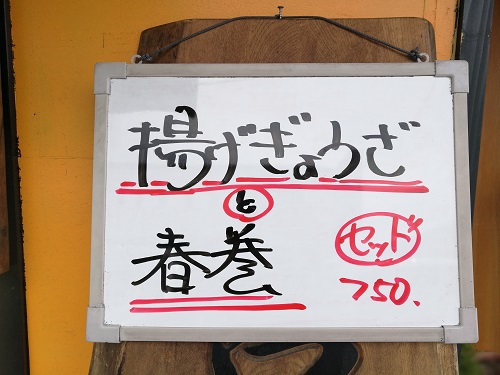 揚げぎょうざ
と
春巻
セット
750.